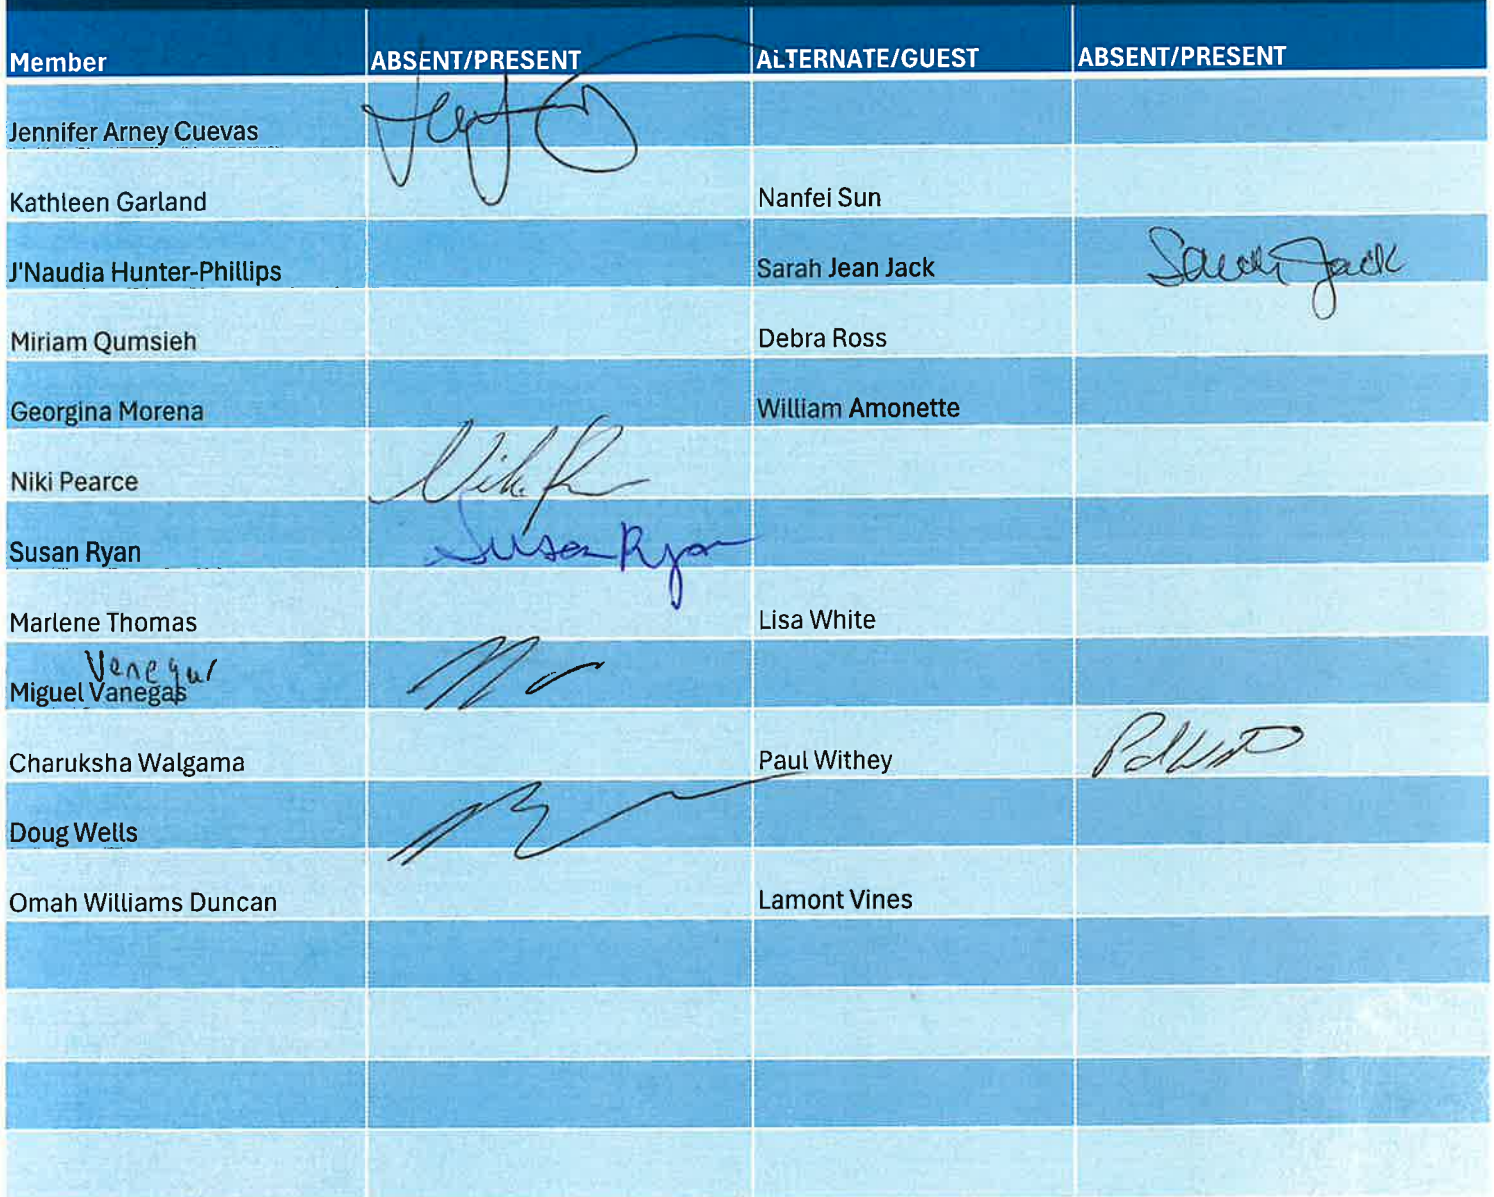 Member ABSENT/PRESENT ALTERNATE/GUEST ABSENT/PRESENT
Jennifer Arney Cuevas
Kathleen Garland Nanfei Sun
J'Naudia Hunter-Phillips Sarah Jean Jack Sarah Jack
Miriam Qumsieh Debra Ross
Georgina Morena William Amonette
Niki Pearce
Susan Ryan Susan Ryan
Marlene Thomas Lisa White
Miguel Vanegas
Charuksha Walgama Paul Withey
Doug Wells
Omah Williams Duncan Lamont Vines